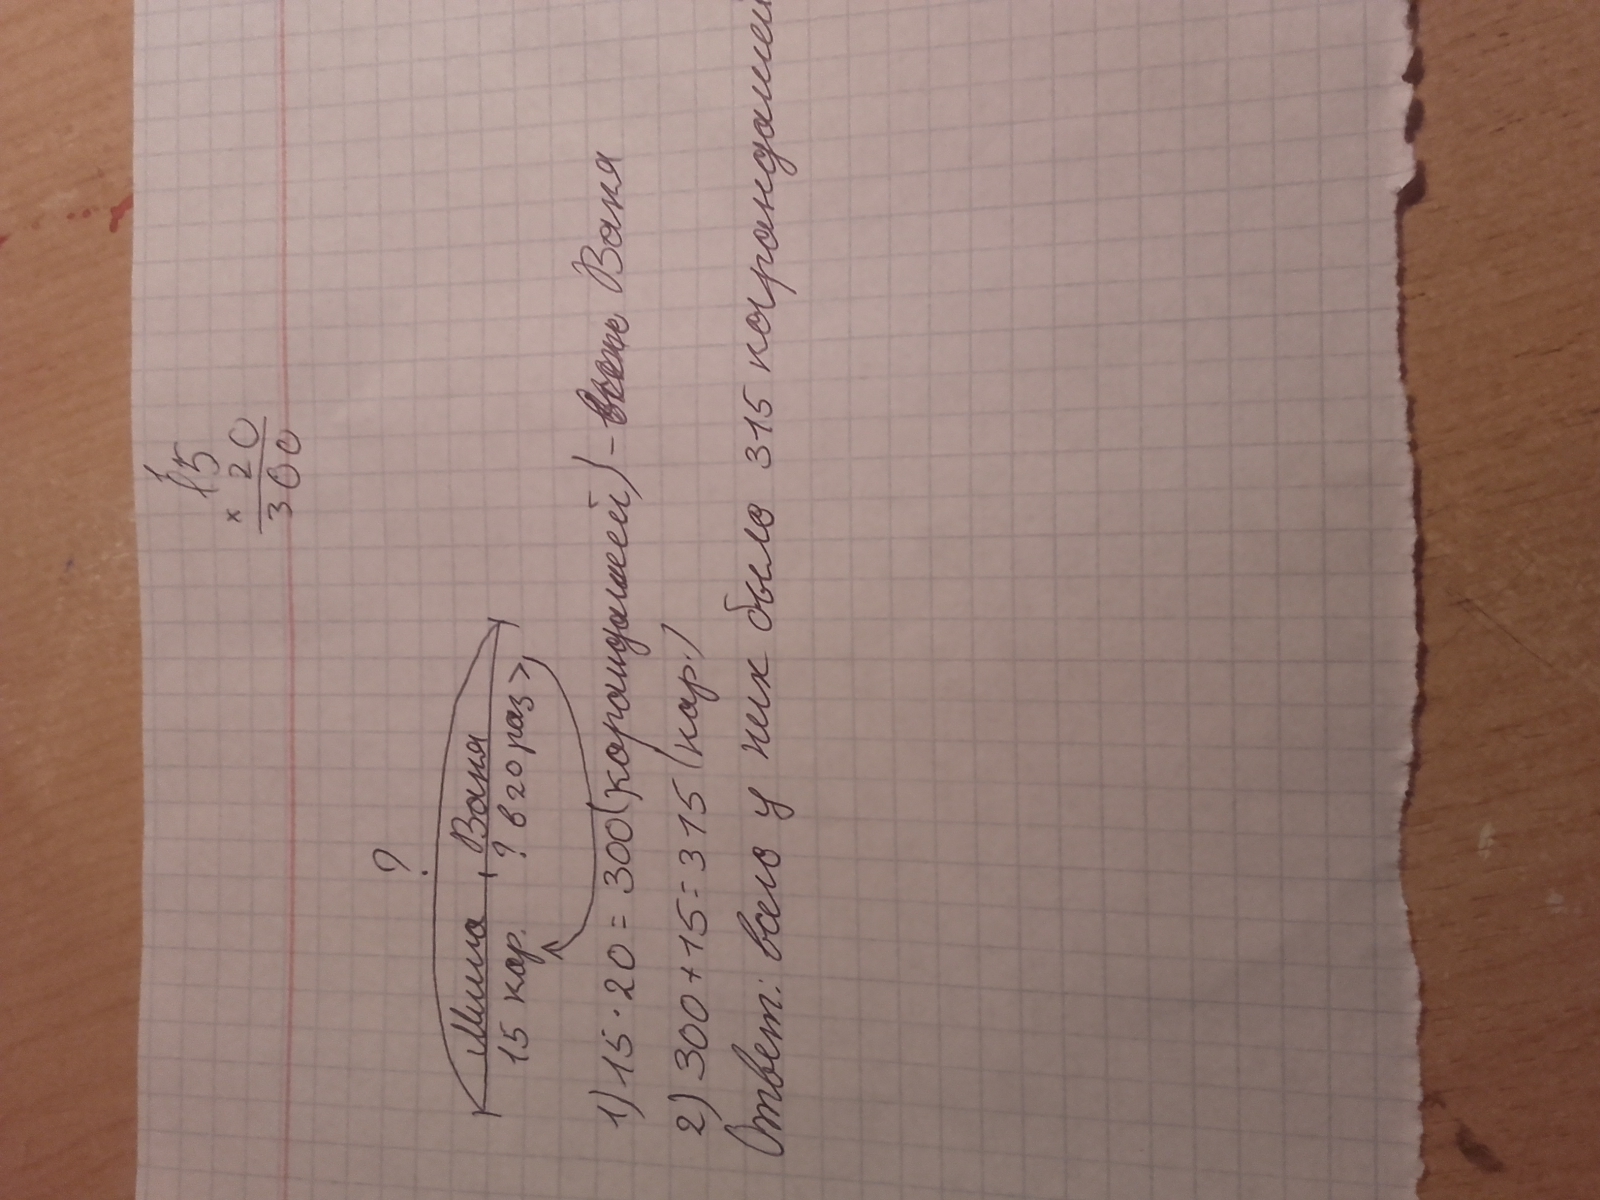 15
× 20
300
?
Миша Ваня
15 кар. ? в 20 раз >
1) 15 · 20 = 300 (карандашей) - Ваня
2) 300 + 15 = 315 (кар.)
Ответ: всего у них было 315 карандашей